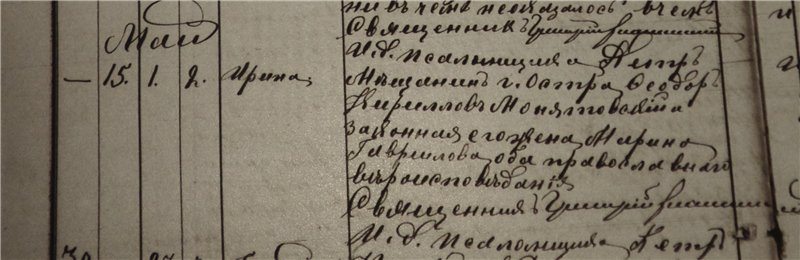 ни въ чемъ не оказалось въ чемъ
Священникъ Григорій
Май
И. д. псаломщика Петръ
— 15. 1. 2. Ирина, Мѣщанинъ г. Остра Ѳеодоръ
Кирилловъ Монятовскій и
законная его жена Марина
Гавриилова, оба православнаго
вѣроисповѣданія
Священникъ Григорій
И. д. псаломщика Петръ